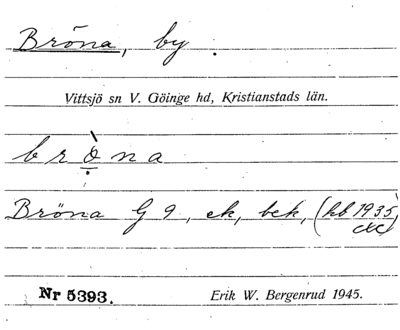 Bröna, by.
Vittsjö sn V. Göinge hd, Kristianstads län.
brö̀na
Bröna G 9, ek, bek, (hb 1935)
Nr 5393. Erik W. Bergenrud 1945.